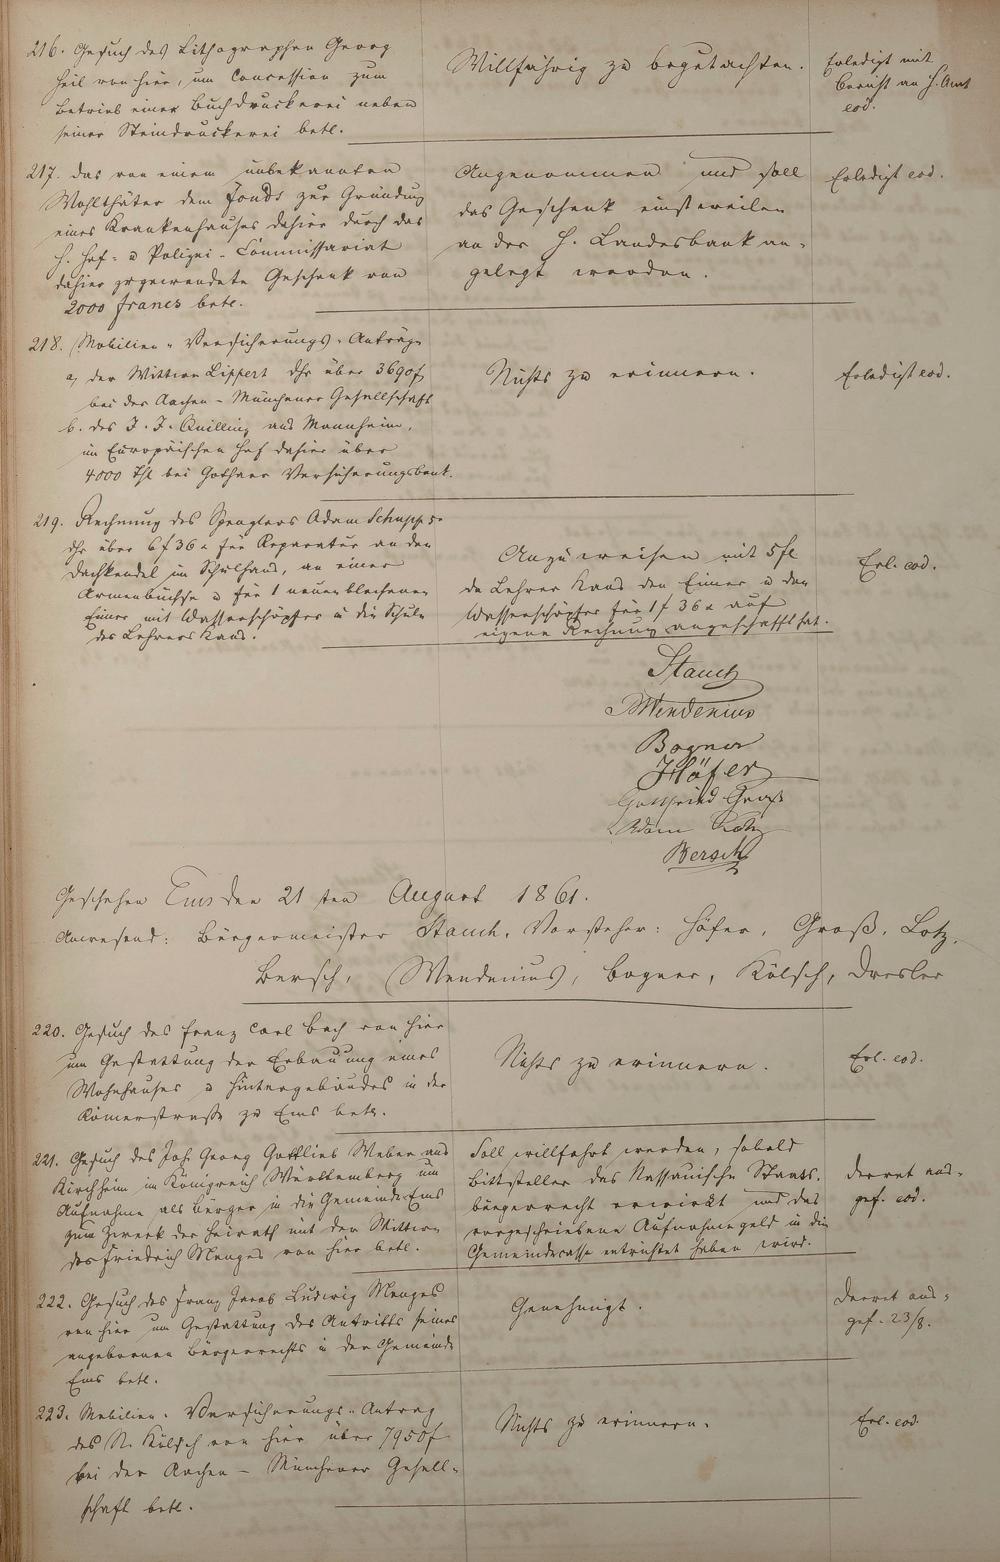 216. Gesuch des Lithographen Georg
Heil von hier, um Concession zum
Betrieb einer Buchdruckerei neben
seiner Steindruckerei betr.
Willfährig zu begutachten.
Erledigt mit
Bericht an H. Amt
eod.
217. Das von einem unbekannten
Wohlthäter dem Fonds zur Gründung
eines Krankenhauses dahier durch das
H. Hof- u Polizei-Commissariat
dahier zugewendete Geschenk von
2000 Francs betr.
Angenommen und soll
das Geschenk einstweilen
an der H. Landesbank an-
gelegt werden.
Erledigt eod.
218. Mobilien-Versicherungs-Anträge
a, der Wittwe Lippert dhr über 3690 f
bei der Aachen-Münchener Gesellschaft
b. des J. J. Quilling aus Mannheim,
im Europäischen Hof dahier über
4000 Thl bei Gothaer Versicherungsbank.
Nichts zu erinnern.
Erledigt eod.
219. Rechnung des Spenglers Adam Schupp
dhr über 6 f 36 x für Reparatur an den
Dachkendel im Schulhaus, an einer
Armenbüchse u für 1 neuen blechernen
Eimer mit Wasserschöpfer in die Schule
des Lehrers Kaus.
Anzuweisen mit 5 fl
da Lehrer Kaus den Eimer u den
Wasserschöpfer für 1 f 36 x auf
eigene Rechnung angeschafft hat.
Erl. eod.
Stauch
Wendenius
Bogner
Höfer
Gottfried Groß
Adam Lotz
Bersch
Geschehen Ems den 21 ten August 1861.
Anwesend: Bürgermeister Stauch, Vorsteher: Höfer, Groß, Lotz,
Bersch, Wendenius, Bogner, Kölsch, Dresler
220. Gesuch des Franz Carl Bach von hier
um Gestattung der Erbauung eines
Wohnhauses u Hintergebäudes in der
Römerstraße zu Ems betr.
Nichts zu erinnern.
Erl. eod.
221. Gesuch des Joh. Georg Gottlieb Weber aus
Kirchheim im Königreich Württemberg um
Aufnahme als Bürger in die Gemeinde Ems
zum Zweck der Heirath mit der Wittwe
des Friedrich Menges von hier betr.
Soll willfahrt werden, sobald
Bittsteller das Nassauische Staats-
bürgerrecht erwirkt und das
vorgeschriebene Aufnahmegeld in die
Gemeindecasse entrichtet haben wird.
Decret aus-
gef. eod.
222. Gesuch des Franz Jacob Ludwig Menges
von hier um Gestattung des Antritts seines
angebornen Bürgerrechts in der Gemeinde
Ems betr.
Genehmigt.
Decret aus-
gef. 23/8.
223. Mobilien-Versicherungs-Antrag
des N. Kölsch von hier über 7950 f
bei der Aachen-Münchener Gesell-
schaft betr.
Nichts zu erinnern.
Erl. eod.